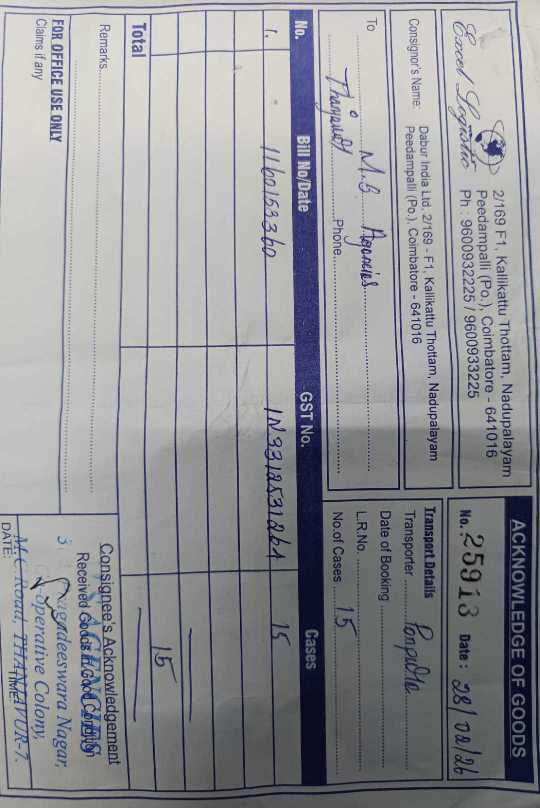 ACKNOWLEDGE OF GOODS
Excel Logistic
2/169 F1, Kallikattu Thottam, Nadupalayam
Peedampalli (Po.), Coimbatore - 641016
Ph : 9600932225 / 9600933225
No. 25913 Date : 28/02/26
Consignor's Name. Dabur India Ltd. 2/169 - F1, Kallikattu Thottam, Nadupalayam
Peedampalli (Po.), Coimbatore - 641016
To M.S. Agencies
Phone
Transport Details
Transporter
Date of Booking
L.R.No.
No.of Cases 15
No. Bill No/Date GST No. Cases
1. 1160153360 IN3312531264 15
Total 15
Remarks
FOR OFFICE USE ONLY
Claims if any
Consignee's Acknowledgement
Received Goods in Good Condition
AGENCIES
Jagadeeswara Nagar,
Co-operative Colony,
M.C. Road, THANJAVUR-7.
DATE: TIME: